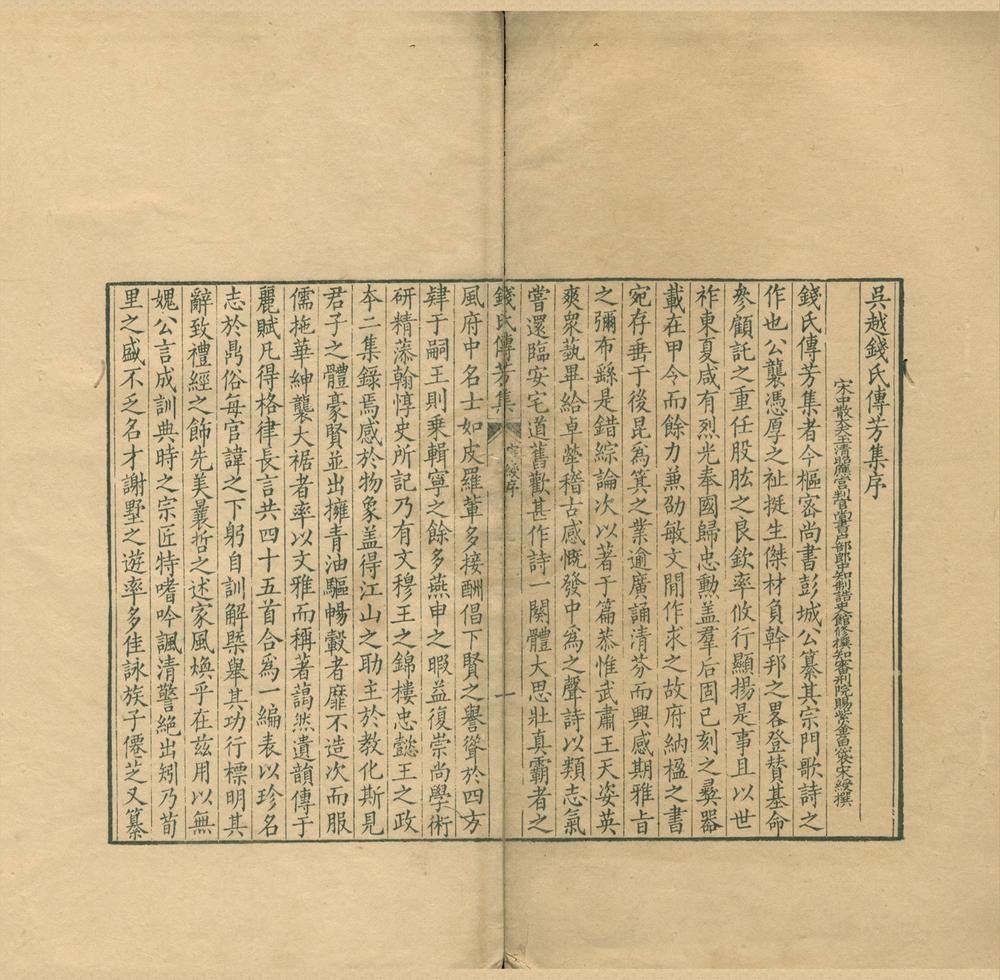 吳越錢氏傳芳集序
宋中散大夫玉清昭應宮判官尚書吏部郎中知制誥史館修撰知審刑院賜紫金魚袋宋綬撰
錢氏傳芳集者今樞密尚書彭城公纂其宗門歌詩之
作也公襲憑厚之祉挺生傑材負幹邦之畧登賛基命
叅顧託之重任股肱之良欽率攸行顯揚是事且以世
祚東夏咸有烈光奉國歸忠勲盖羣后固已刻之彛器
載在甲令而餘力兼劭敏文閒作求之故府納楹之書
宛存垂于後昆爲箕之業逾廣誦清芬而興感期雅旨
之彌布繇是錯綜論次以著于篇恭惟武肅王天姿英
爽衆蓺畢給卓犖稽古感慨發中爲之聲詩以類志氣
嘗還臨安宅道舊歡甚作詩一闋體大思壯真霸者之
錢氏傳芳集 宋綬序 一
風府中名士如皮羅軰多接酬倡下賢之譽聳於四方
肄于嗣王則乗輯寧之餘多燕申之暇益復崇尚學術
研精藻翰惇史所記乃有文穆王之錦樓忠懿王之政
夲二集錄焉感於物象盖得江山之助主於教化斯見
君子之體豪賢並出擁青油驅暢轂者靡不造次而服
儒拖華紳襲大裾者率以文雅而稱著藹然遺韻傳于
麗賦凡得格律長言共四十五首合爲一編表以珍名
志於鼎俗每官諱之下躬自訓解槩舉其功行標明其
辭致禮經之飾先美曩哲之述家風煥乎在茲用以無
媿公言成訓典時之宗匠特嗜吟諷清警絕出矧乃荀
里之盛不乏名才謝墅之遊率多佳詠族子僊芝又纂